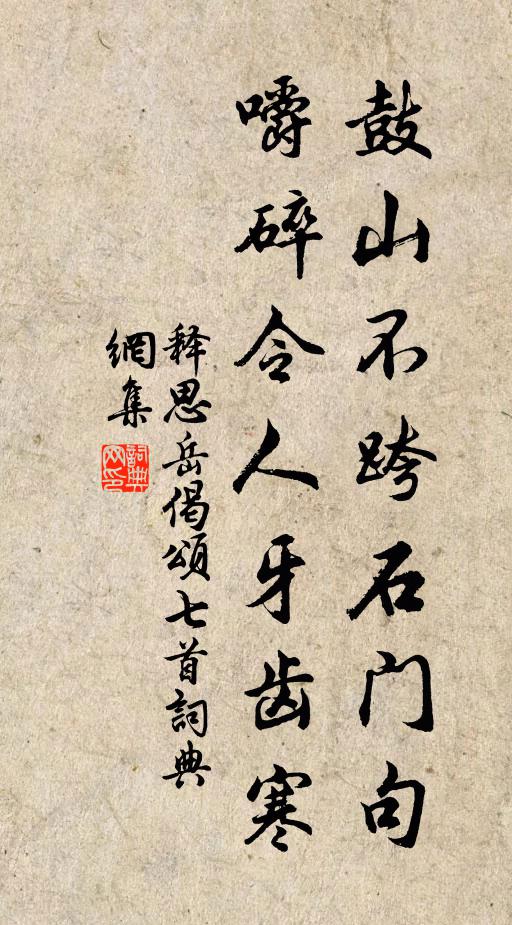 鼓山不跨石门句
嚼碎令人牙齿寒
释思岳偈頌七首詞典
網集
詞典网印